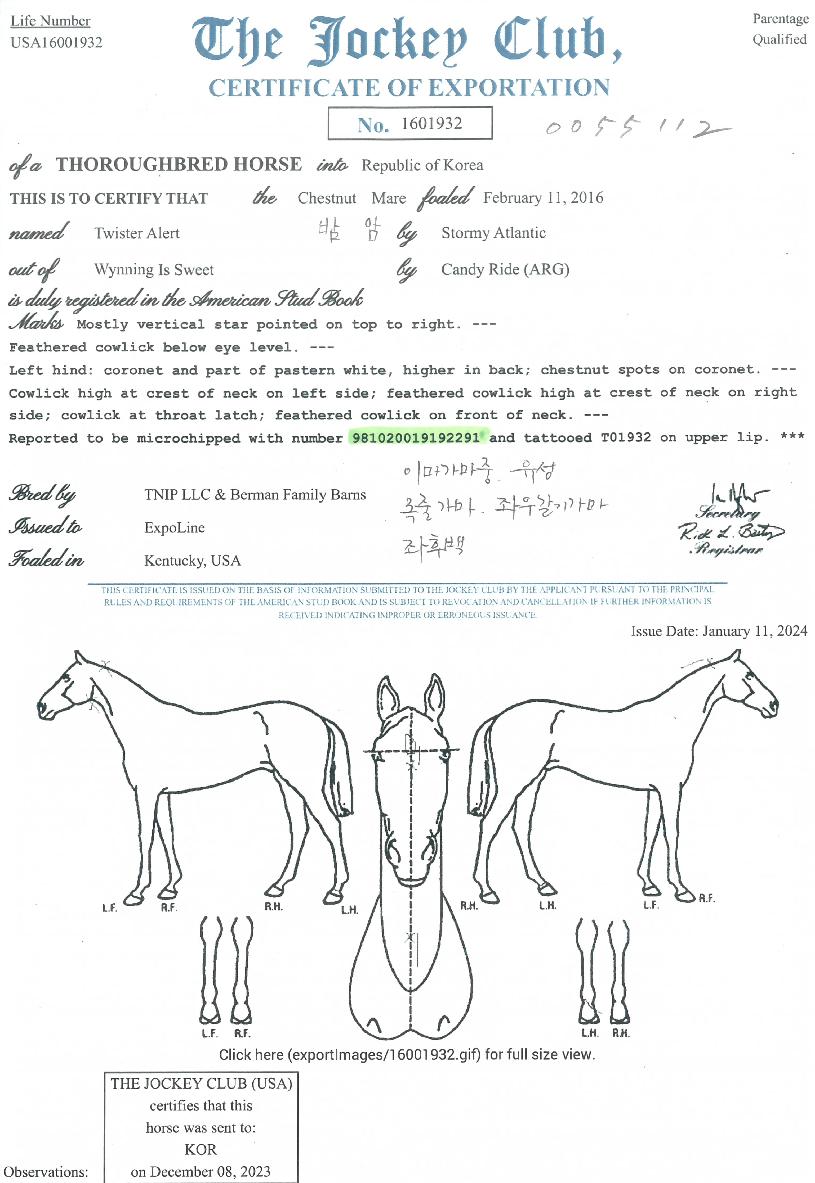 Life Number
USA16001932
The Jockey Club,
Parentage
Qualified
CERTIFICATE OF EXPORTATION
No. 1601932
0055112
of a THOROUGHBRED HORSE into Republic of Korea
THIS IS TO CERTIFY THAT the Chestnut Mare foaled February 11, 2016
named Twister Alert 밤 암 by Stormy Atlantic
out of Wynning Is Sweet by Candy Ride (ARG)
is duly registered in the American Stud Book
Marks Mostly vertical star pointed on top to right. ---
Feathered cowlick below eye level. ---
Left hind: coronet and part of pastern white, higher in back; chestnut spots on coronet. ---
Cowlick high at crest of neck on left side; feathered cowlick high at crest of neck on right
side; cowlick at throat latch; feathered cowlick on front of neck. ---
Reported to be microchipped with number 981020019192291 and tattooed T01932 on upper lip. ***
이마가마중 유성
Bred by TNIP LLC & Berman Family Barns
목줄가마. 좌우갈기가마
Secretary
Issued to ExpoLine
좌후백
Registrar
Foaled in Kentucky, USA
THIS CERTIFICATE IS ISSUED ON THE BASIS OF INFORMATION SUBMITTED TO THE JOCKEY CLUB BY THE APPLICANT PURSUANT TO THE PRINCIPAL
RULES AND REQUIREMENTS OF THE AMERICAN STUD BOOK AND IS SUBJECT TO REVOCATION AND CANCELLATION IF FURTHER INFORMATION IS
RECEIVED INDICATING IMPROPER OR ERRONEOUS ISSUANCE.
Issue Date: January 11, 2024
L.F. R.F. R.H. L.H. R.H. L.H. L.F. R.F.
L.F. R.F. L.H. R.H.
Click here (exportImages/16001932.gif) for full size view.
THE JOCKEY CLUB (USA)
certifies that this
horse was sent to:
KOR
Observations: on December 08, 2023